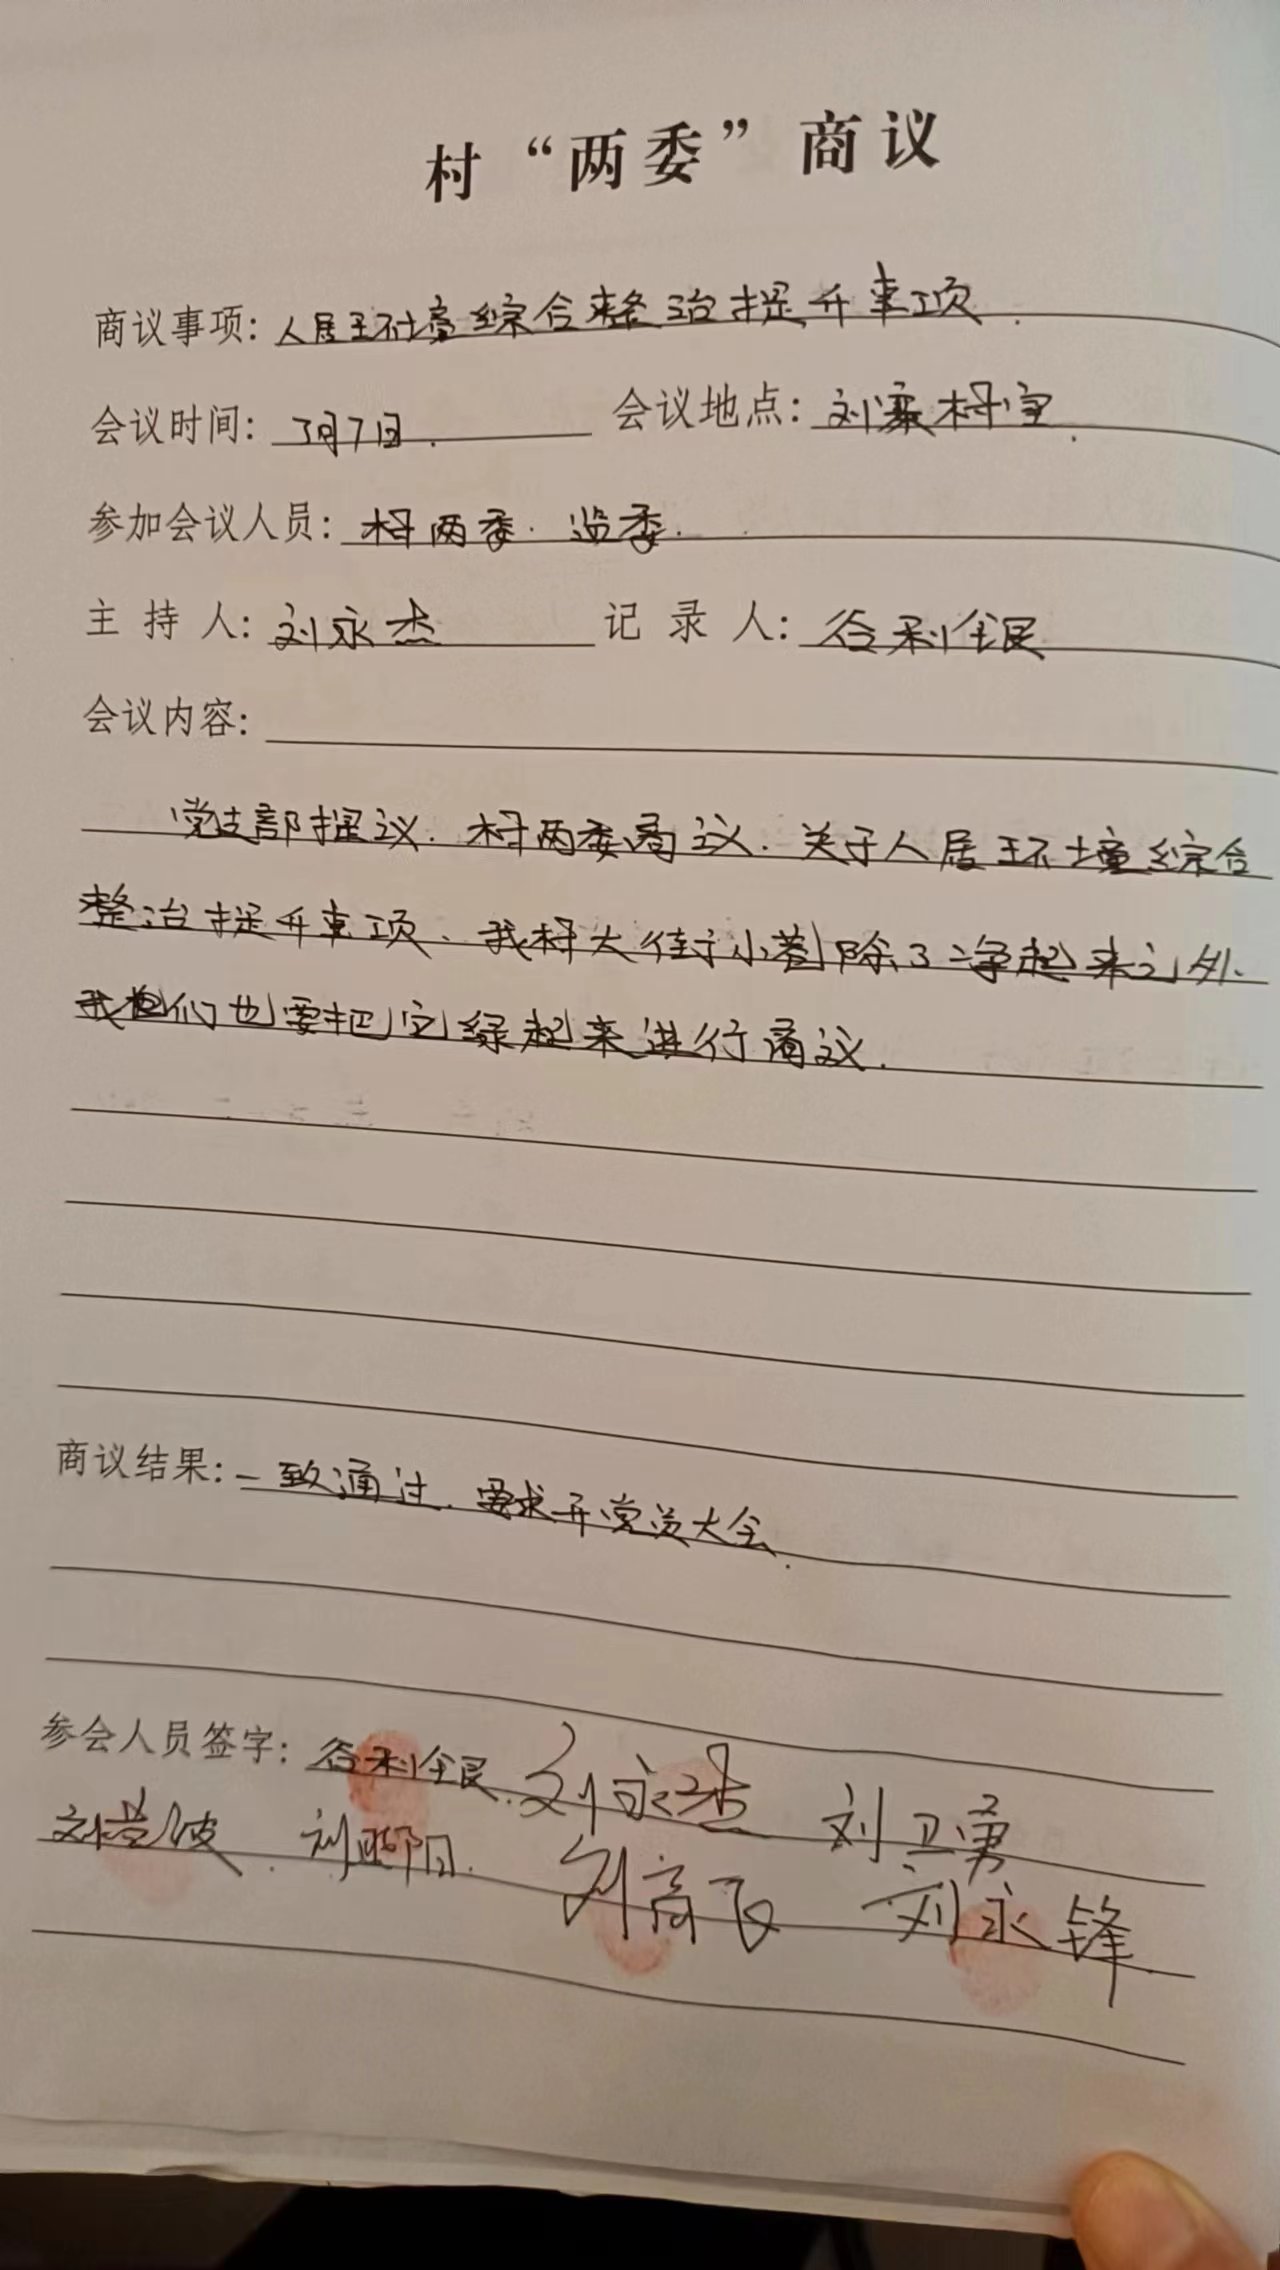 村“两委”商议
商议事项：人居环境综合整治提升事项.
会议时间：3月7日. 会议地点：刘寨村室.
参加会议人员：村两委. 监委.
主 持 人：刘永杰 记 录 人：谷利全民
会议内容：
党支部提议. 村两委商议. 关于人居环境综合
整治提升事项、我村大街小巷除了净起来之外、
我们也要把它绿起来进行商议.
商议结果：一致通过. 要求开党员大会.
参会人员签字：谷利 刘永杰 刘卫勇
刘 波. 刘 阳. 刘高飞 刘永锋